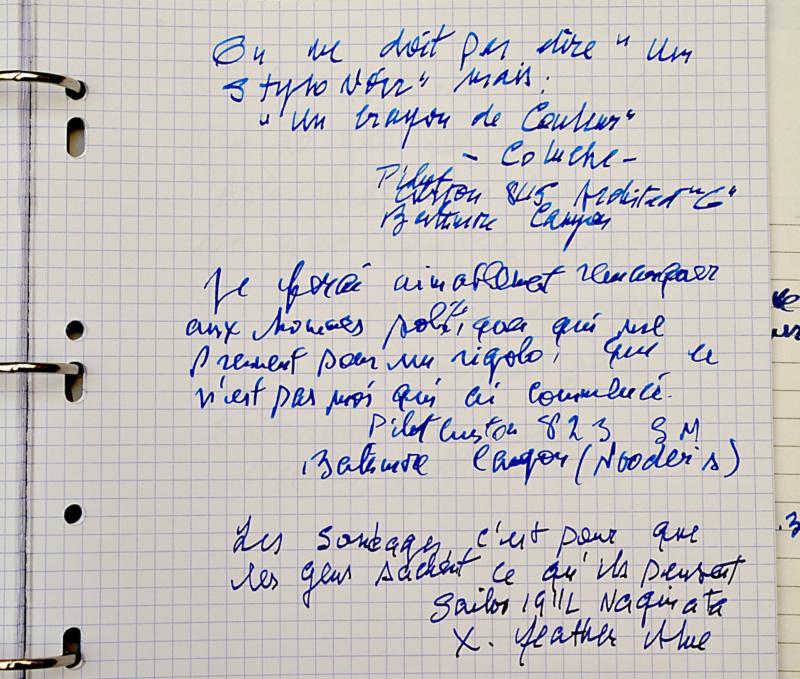 On ne doit pas dire "un
stylo Noir" mais:
"un crayon de Couleur"
- Coluche -
Pilot
Custom 845 Architect "G"
Baltimore Canyon
Je ferai aimablement remarquer
aux hommes politiques qui me
prennent pour un rigolo, que ce
n'est pas moi qui ai commencé.
Pilot Custom 823 M
Baltimore Canyon (Nooder's)
Les sondages, c'est pour que
les gens sachent ce qu'ils pensent
Sailor 1911L Naginata
X. feather blue